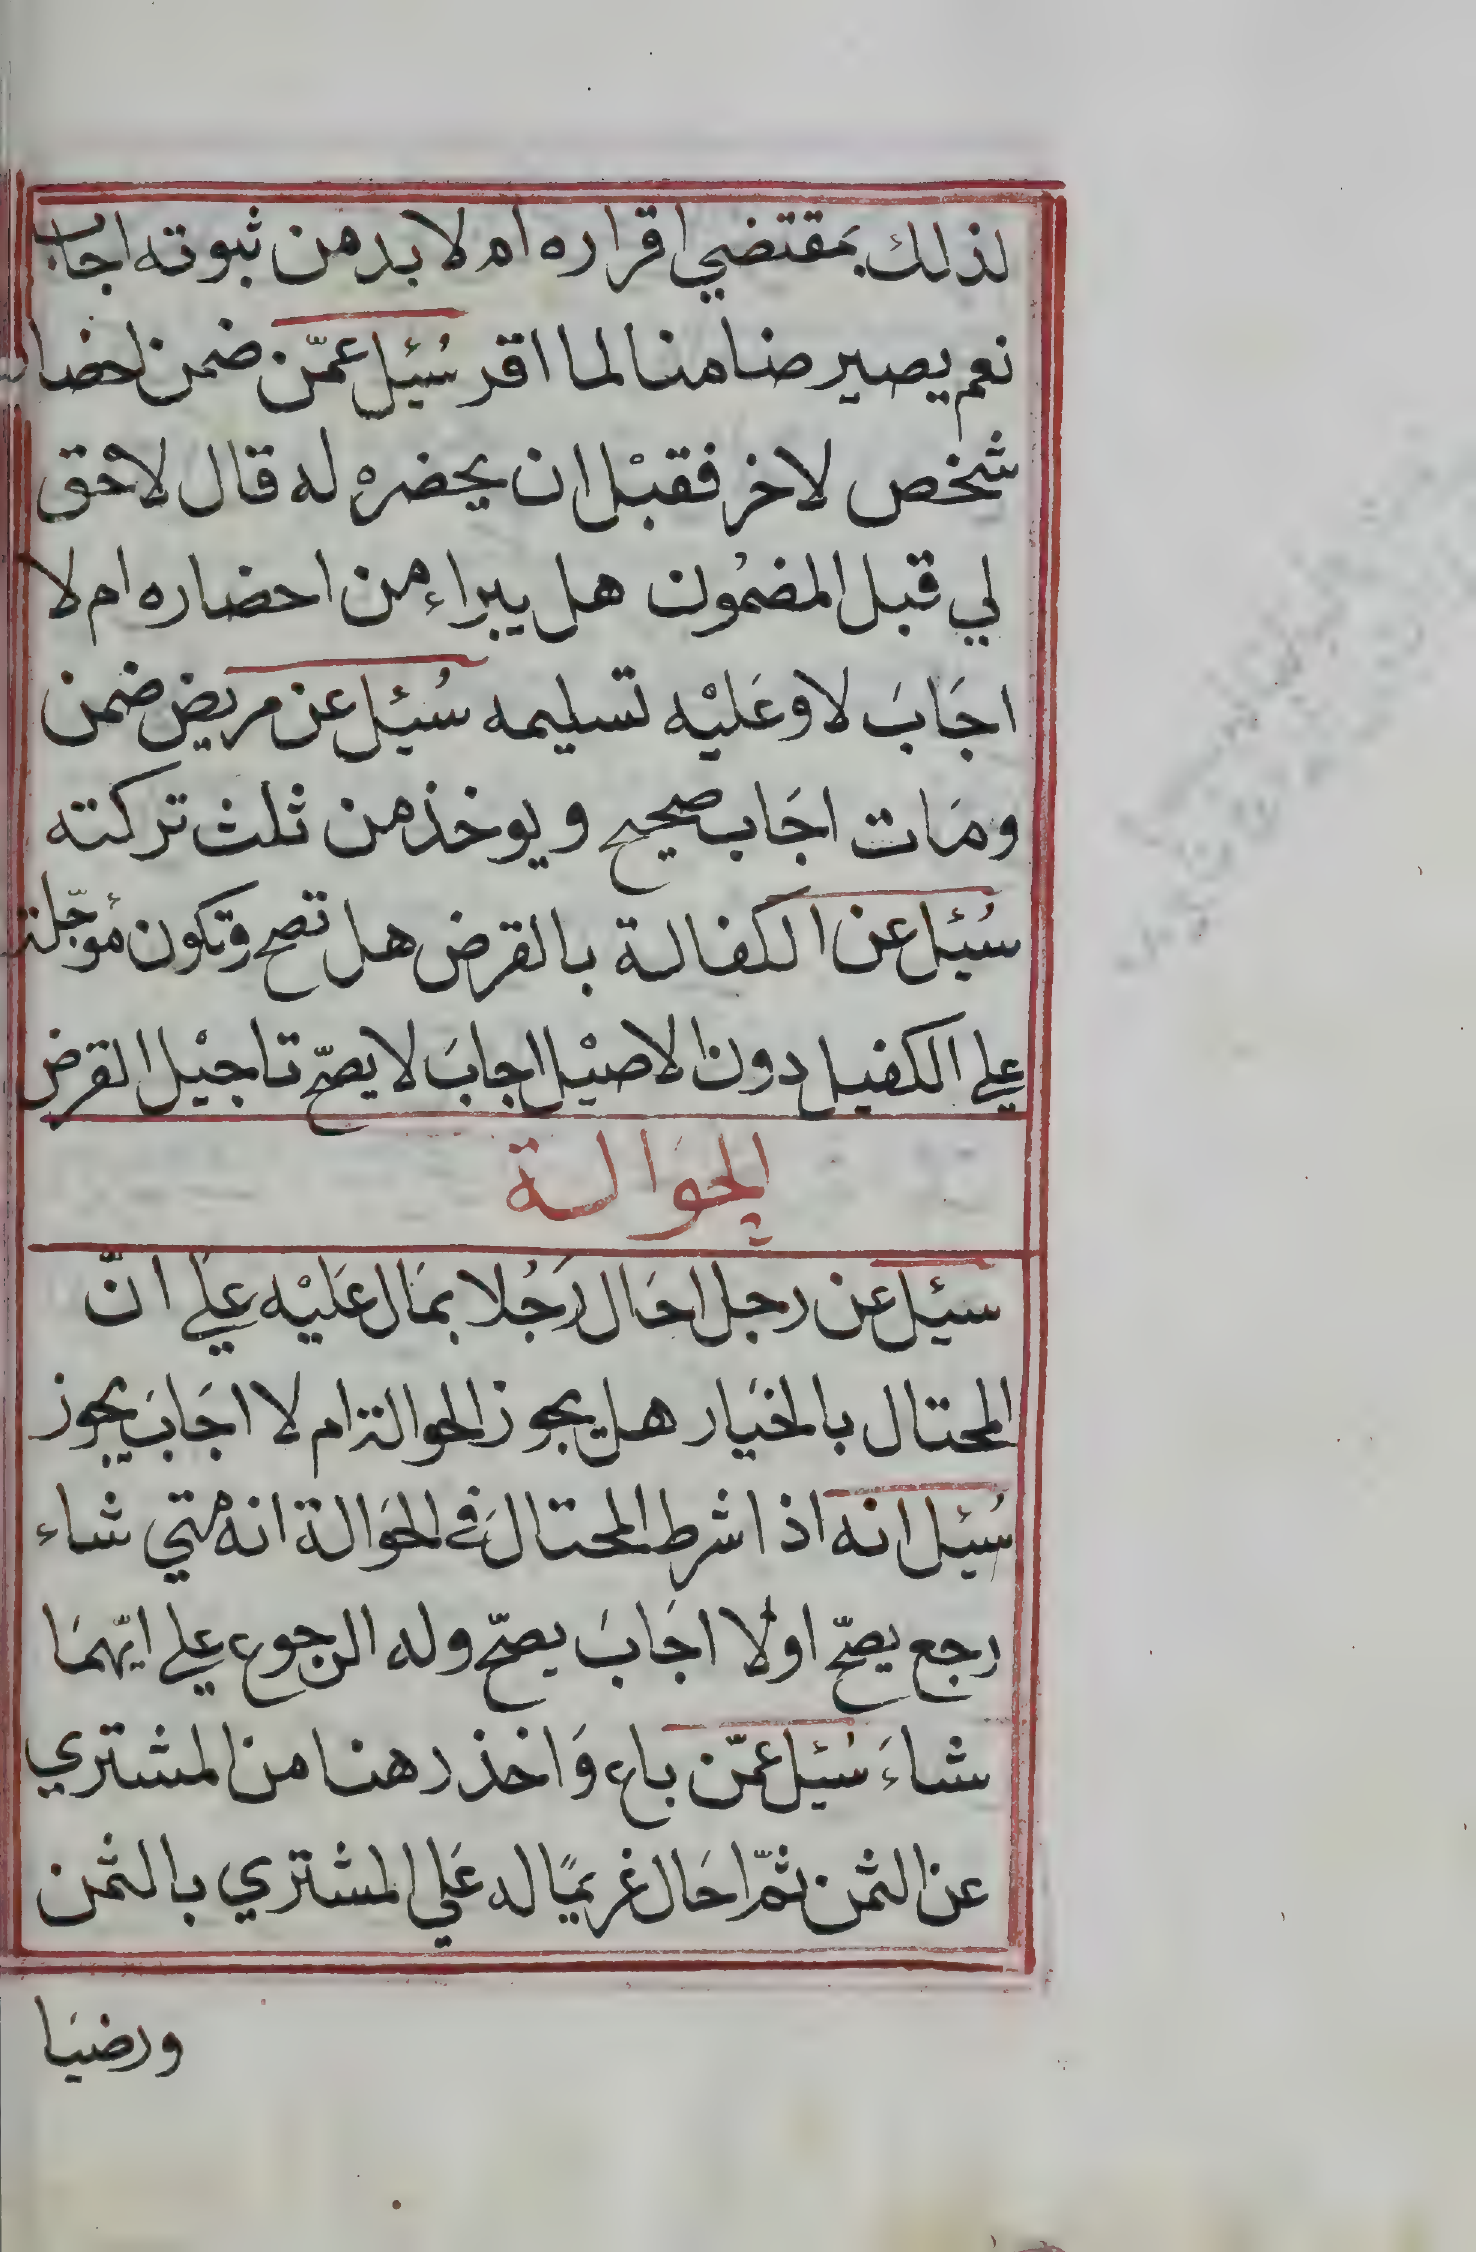 لذلك بمقتضي اقراره ام لا بد من ثبوته اجاب
نعم يصير ضامنا لما اقر سُئِل عمّن ضمن احضار
شخص لاخر فقبْل ان يحضرهْ له قال لا حْق
لي قبل المضمُون هل يبراء من احضاره ام لا
اجَابَ لا وعَليْه تسليمه سُئِل عن مريض ضمن
ومَات اجَاب صحيح ويوخذ من ثلث تركته
سُئِل عن الكفالة بالقرض هل تصح وتكون مُؤجّلة
علي الكفيل دون الاصيْل اجابَ لا يصحّ تاجيْل القرض
الحوَالة
سئِل عن رجل احَال رَجُلا بمَال عَليْه عَلي انّ
المحتال بالخيَار هل يجوز الحوالة ام لا اجَابَ يجوز
سُئِل انه اذا شرط المحتالَ في الحوَالة انه متي شاء
رجع يصحّ اولا اجَابَ يصحّ وله الرجوع علي ايّهمَا
شاءَ سُئِل عمّن باع وَاخذ رهنا من المشتري
عن الثمن ثمّ احَال غريمًا له عَلي المشتري بالثمن
ورضيَا